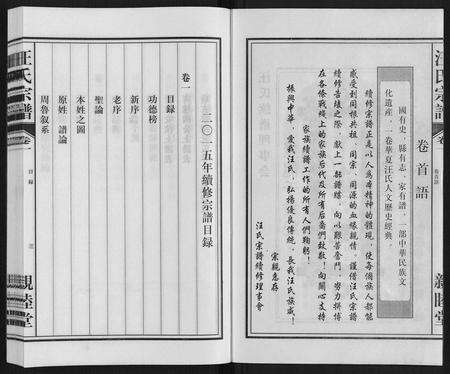 汪氏宗譜
卷首語
國有史，縣有志，家有譜，一部中華民族文
化遺産，一卷華夏汪氏人文歷史經典。
卷首語
續修宗譜正是以人爲本精神的體現，使每個族人都能
感受到同根共祖，同宗、同源的血緣親情，謹借汪氏宗譜
續修告竣之際，獻上一部譜牒，向以艱苦奮鬥、努力拼搏
在各條戰綫上的家族后代及所有后裔們致敬！向關心支持
家族續譜工作的所有人們鞠躬！
振興中華，我愛汪氏，弘揚優良傳統，長我汪氏族威！
宗親惠存
汪氏宗譜續修理事會
親睦堂
二〇一五年續修宗譜目録
卷一
目録
功德榜
新序
老序
聖諭
本姓之圖
原姓 譜論
周魯叙系
汪氏宗譜
卷一
目録
親睦堂